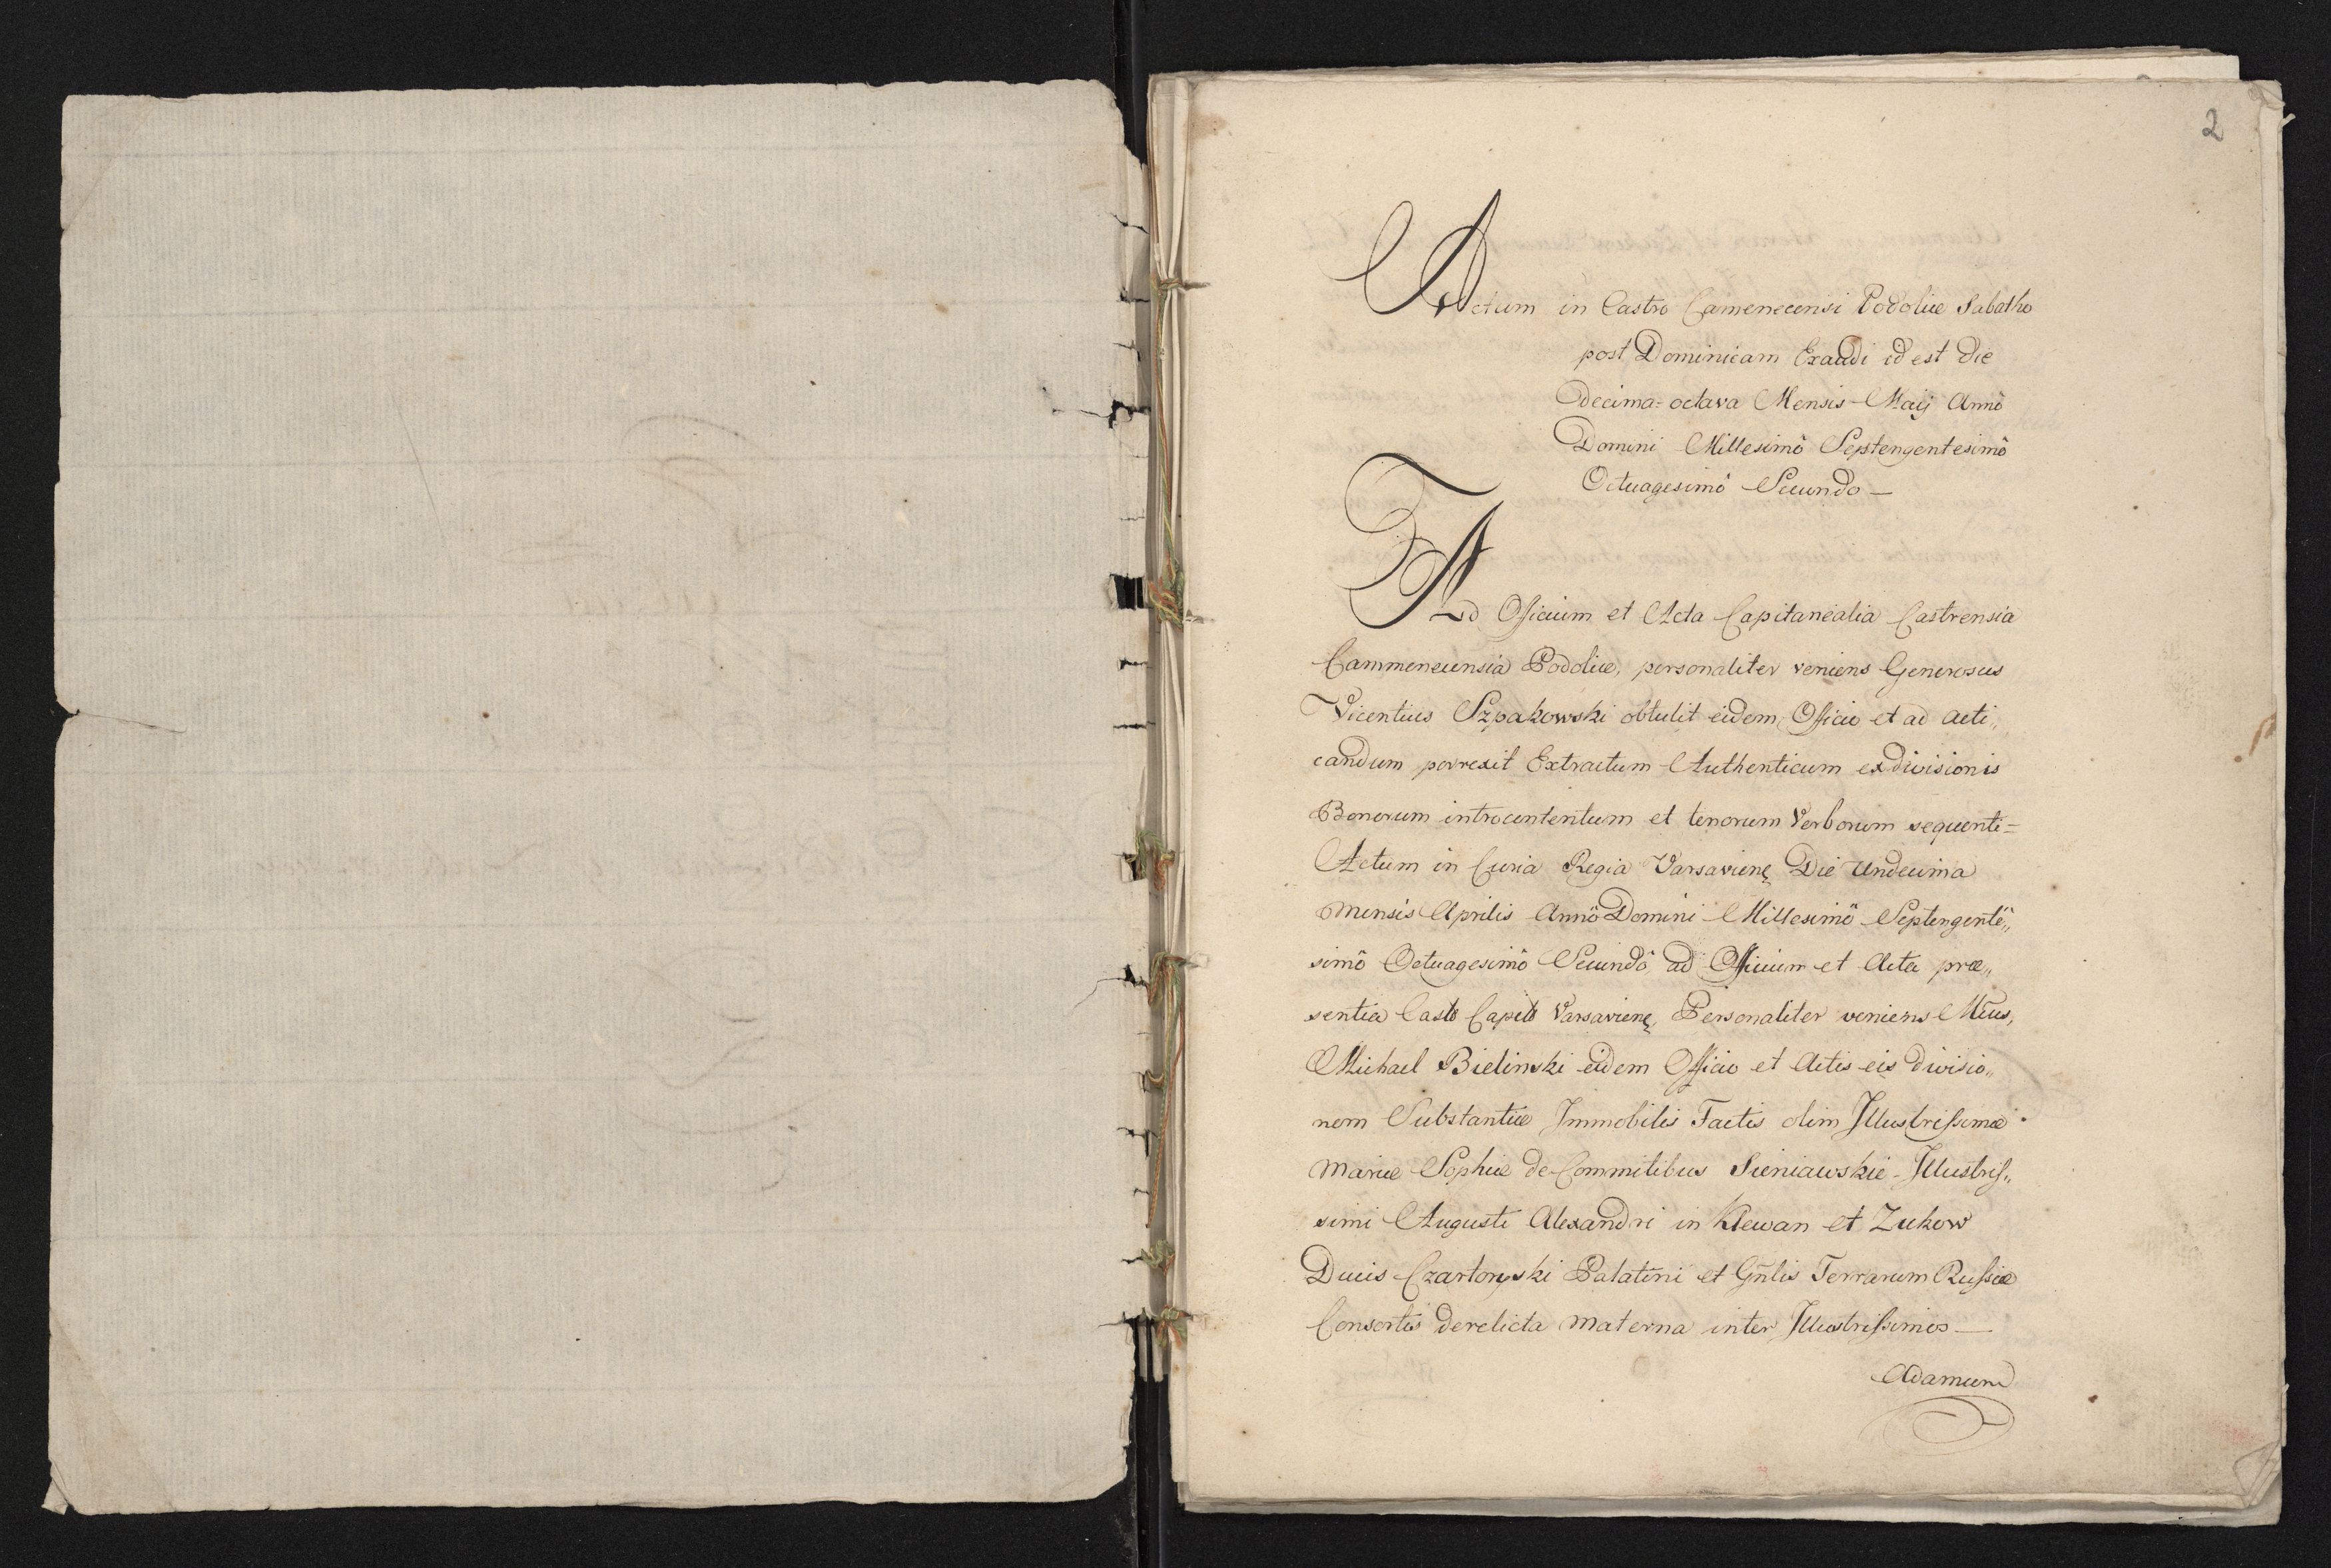 2
Actum in Castro Camenecensi Podoliæ Sabatho
post Dominicam Exaudi id est die
decima=octava Mensis Maij Annô
Domini Millesimô Septengentesimô
Octuagesimô Secundo—
Ad Officium et Acta Capitanealia Castrensia
Cammenecensia Podoliæ, personaliter veniens Generosus
Vicentius Szpakowski obtulit eidem Officio et ad acti„
candum porrexit Extractum Authenticum exdivisionis
Bonorum introcontentum et tenorum Verborum sequenti=
Actum in Curia Regia Varsavienę Die Undecima
Mensis Aprilis Annô Domini Millesimô Septengentê„
simô Octuagesimô Secundô ad Officium et Acta præ„
sentia Castr Capit Varsavienę Personaliter veniens Mcus,
Michael Bielinski eidem Officio et Actis eis divisio„
nem Substantiæ Immobilis Factis olim Illustrissimæ
Mariæ Sophiæ de Commitibus Sieniawskie Illustris„
simi Augusti Alexandri in Klewan et Zukow
Ducis Czartoryski Palatini et Gnlis Terrarum Russiæ
Consortis derelicta Materna inter Illustrissimos—
Adamum